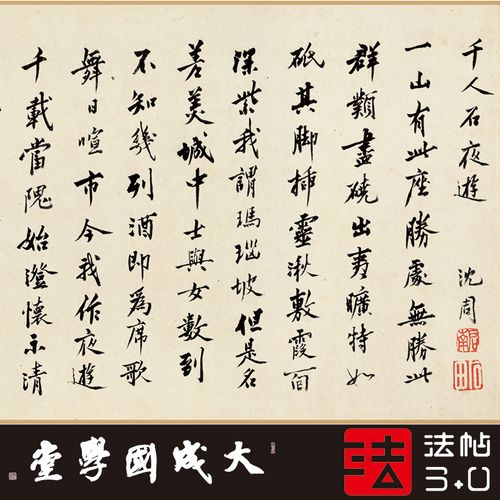 千人石夜遊
沈周
一山有此座勝處無勝此
群類盡磽出夷曠特如
砥其脚插靈湫敷霞面
深紫我謂瑪瑙坡但是名
差美城中士與女數到
不知幾列酒即為席歌
舞日喧市今我作夜遊
千載當隗始澄懷示清
大成國學堂
法
法帖
3.0